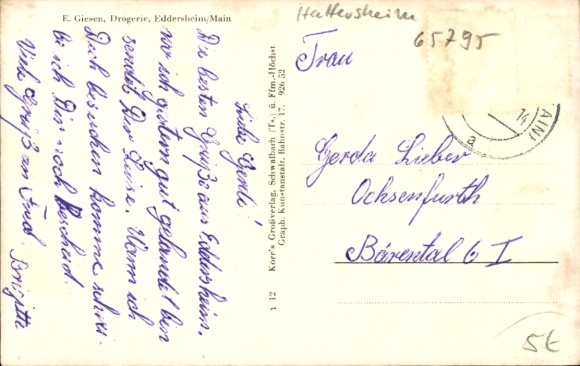 E. Giesen, Drogerie, Eddersheim/Main
Hattersheim
65795
Liebe Gerli!
Die besten Grüße aus Eddersheim,
wo ich gestern gut gelandet bin
sendet Dir Luise. Wann ich
Dich besuchen komme schrei-
be ich Dir noch Bescheid.
Viele Grüße an Frd. Brigitte
1 12 Korr's Großverlag, Schwalbach (Ts.) ü. Ffm.-Höchst
Graph. Kunstanstalt, Bahnstr. 17, 926 52
Frau
Gerda Lieber
Ochsenfurth
Bärental 6 I
MAIN
14
a
5€